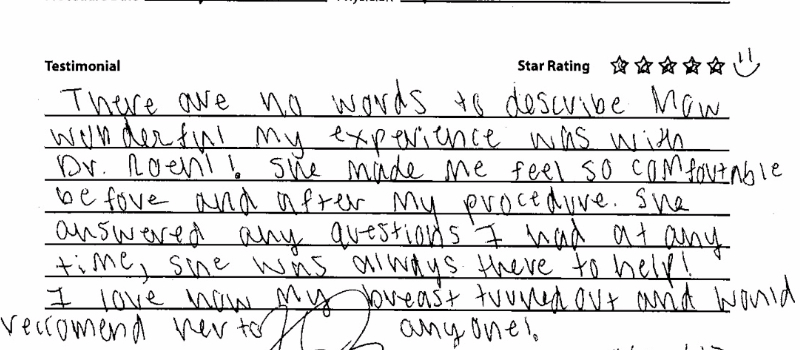 Testimonial Star Rating
There are no words to describe how
wonderful my experience was with
Dr. Roehl! She made me feel so comfortable
before and after my procedure. She
answered any questions I had at any
time, she was always there to help!
I love how my breast turned out and would
reccomend her to anyone!